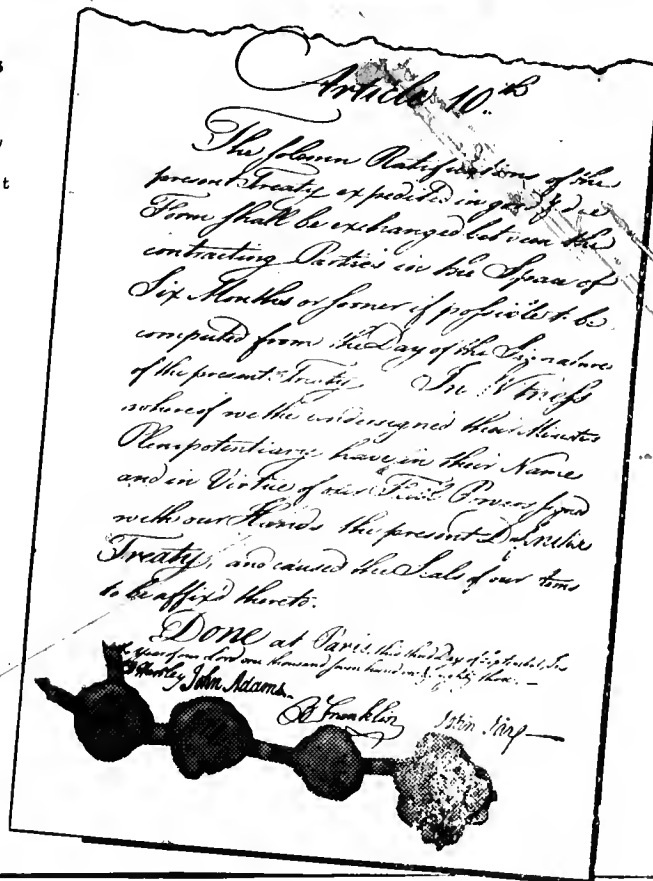 Article 10.th
The solemn Ratifications of the
present Treaty expedited in good & due
Form shall be exchanged between the
contracting Parties in the Space of
Six Months or sooner if possible to be
computed from the Day of the Signature
of the present Treaty. In Witness
whereof we the undersigned their Ministers
Plenipotentiary have in their Name
and in Virtue of our Full Powers signed
with our Hands the present Definitive
Treaty, and caused the Seals of our Arms
to be affix'd thereto.
Done at Paris, this third Day of September, In
the Year of our Lord one thousand seven hundred & eighty three.—
D Hartley John Adams.
B Franklin John Jay
t